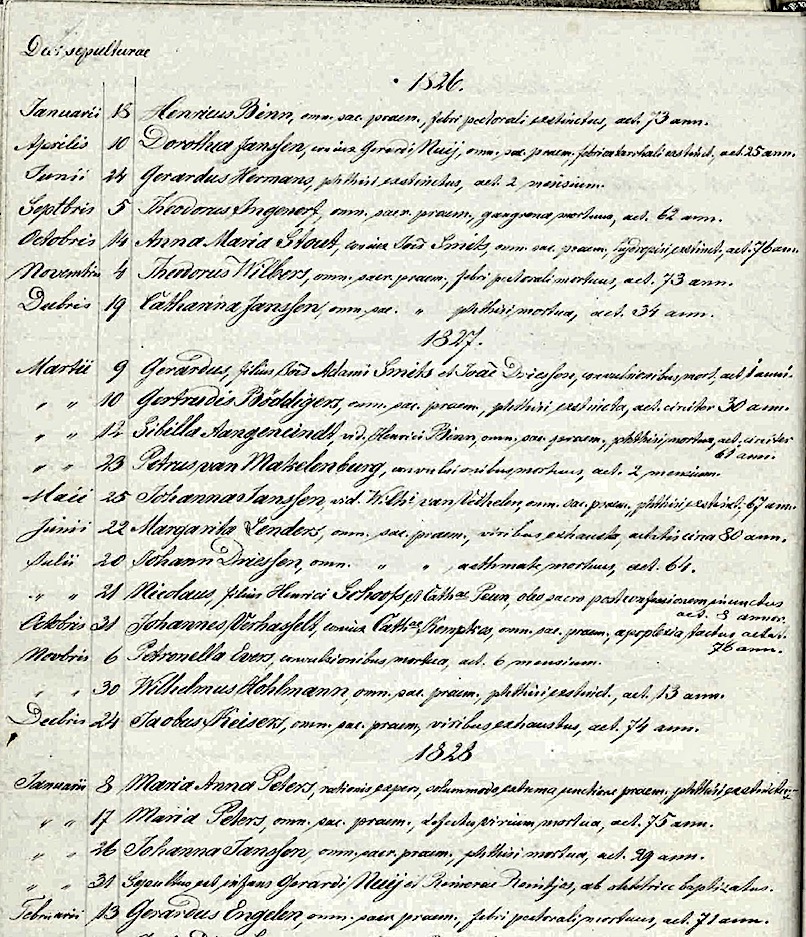 Dies sepulturae
1826.
Januarii 18 Henricus Binn, omn. sac. praem., febri pectorali exstinctus, aet. 73 ann.
Aprilis 10 Dorothea Janssen, coniux Gerardi Nuij, omn. sac. praem. febri catarrhali exstinct, aet. 25 ann.
Junii 24 Gerardus Hermans, phthisi exstinctus, aet. 2 mensium.
Septbris 5 Theodorus Ingenerf, omn. sacr. praem., gangrena mortuus, aet. 62 ann.
Octobris 14 Anna Maria Stout, coniux Smits, omn. sac. praem. hydropisi exstinct, aet. 76 ann.
Novembris 4 Theodorus Wilbers, omn. sacr. praem., febri pectorali mortuus, aet. 73 ann.
Decbris 19 Catharina Janssen, omn. sac. " phthisi mortua, aet. 34 ann.
1827.
Martii 9 Gerardus, filius Adami Smits et Driessen, convulsionibus mort, aet. anni.
" " 10 Gertrudis Böddigers, omn. sac. praem., phthisi exstincta, aet. circiter 30 ann.
" " 12 Sibilla Aangeneindt, vid. Henrici Binn, omn. sac. praem., phthisi mortua, aet. circiter
ann.
" " 23 Petrus van Makelenburg, convulsionibus mortuus, aet. 2 mensium.
Maii 25 Johanna Janssen, vid. van omn. sac. praem. phthisi exstinct. 67 ann.
Junii 22 Margarita Lenders, omn. sac. praem., viribus exhausta, aetatis circa 80 ann.
Julii 20 Johann Driessen, omn. " " , asthmate mortuus, aet. 64.
" " 21 Nicolaus, filius Henrici Schoofs et Cathae Peun, oleo sacro post confessionem inunctus
aet. 8 annor.
Octobris 31 Johannes Verhasselt, coniux Cathae Kempkes, omn. sac. praem. apoplexia tactus aetat.
76 ann.
Novbris 6 Petronella Evers, convulsionibus mortua, aet. 6 mensium.
" " 30 Wilhelmus Hohlmann, omn. sac. praem., phthisi exstinct., aet. 13 ann.
Decbris 24 Jacobus Keisers, omn. sac. praem, viribus exhaustus, aet. 74 ann.
1828
Januarii 8 Maria Anna Peters, rationis expers, solummodo extrema unctione praem. phthisi exstincta
" " 17 Maria Peters, omn. sac. praem., defectu virium mortua, aet. 75 ann.
" " 26 Johanna Janssen, omn. sacr. praem., phthisi mortua, aet. 29 ann.
" " 31 Sepultus est infans Gerardi Nuij et Reinerae Rentjes, ab obstetrice baptizatus.
Februarii 13 Gerardus Engelen, omn. sacr. praem., febri pectorali mortuus, aet. 71 ann.